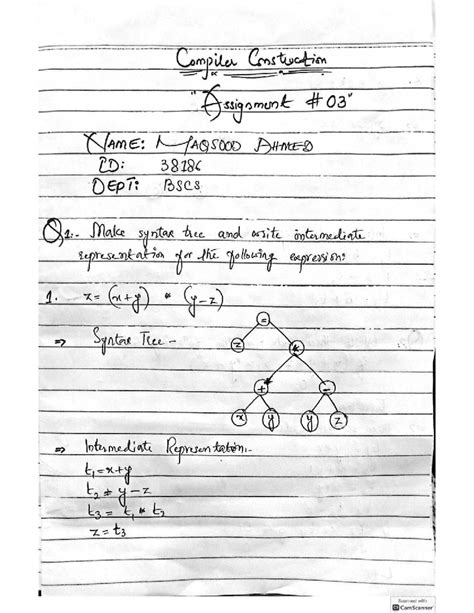 Compiler Constuction
"Assignment #03"
NAME: MAQSOOD AHMED
ID: 38186
DEPT: BSCS
Q,1:- Make syntax tree and write intermediate
representation for the following expression:
1. z = (x+y) * (y-z)
⇒ Syntax Tree -
=
z *
+ -
x y y z
⇒ Intermediate Representation:-
t₁ = x+y
t₂ = y-z
t₃ = t₁ * t₂
z = t₃
Scanned with
CS CamScanner